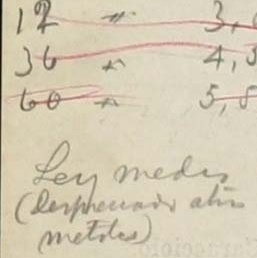 12 " 3,
36 " 4,3
60 " 5,8
Ley media
(despreciado otros
metales)